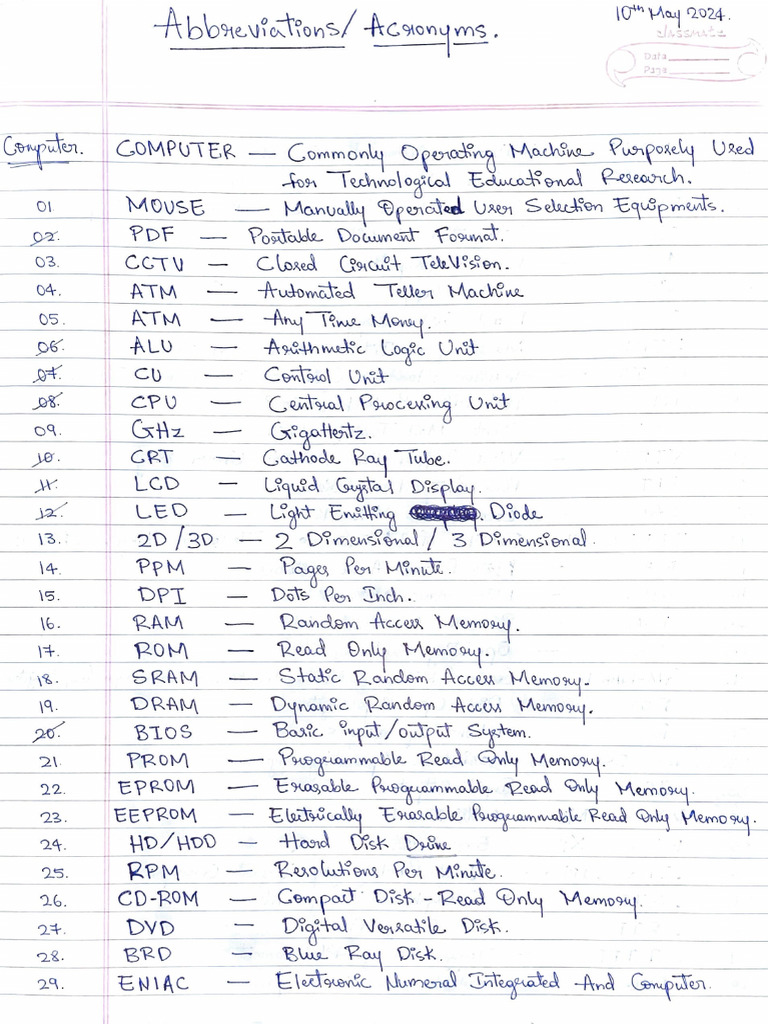 Abbreviations/ Acronyms.
10th May 2024.
classmate
Date
Page
Computer. COMPUTER — Commonly Operating Machine Purposely Used
for Technological Educational Research.
01. MOUSE — Manually Operated User Selection Equipments.
02. PDF — Portable Document Format.
03. CCTV — Closed Circuit TeleVision.
04. ATM — Automated Teller Machine
05. ATM — Any Time Money.
06. ALU — Arithmetic Logic Unit
07. CU — Control Unit
08. CPU — Central Processing Unit
09. GHz — GigaHertz.
10. CRT — Cathode Ray Tube.
11. LCD — Liquid Crystal Display.
12. LED — Light Emitting Diode
13. 2D/3D — 2 Dimensional/ 3 Dimensional.
14. PPM — Pages Per Minute.
15. DPI — Dots Per Inch.
16. RAM — Random Access Memory.
17. ROM — Read Only Memory.
18. SRAM — Static Random Access Memory.
19. DRAM — Dynamic Random Access Memory.
20. BIOS — Basic input/output System.
21. PROM — Programmable Read Only Memory.
22. EPROM — Erasable Programmable Read Only Memory.
23. EEPROM — Electrically Erasable Programmable Read Only Memory.
24. HD/HDD — Hard Disk Drive
25. RPM — Resolutions Per Minute.
26. CD-ROM — Compact Disk - Read Only Memory.
27. DVD — Digital Versatile Disk.
28. BRD — Blue Ray Disk.
29. ENIAC — Electronic Numeral Integrated And Computer.